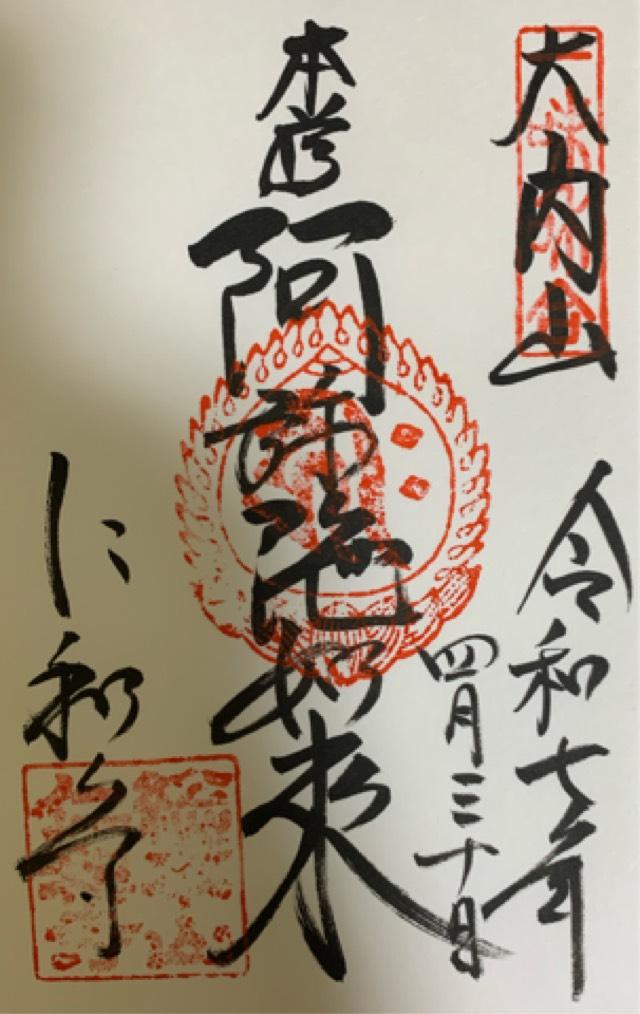 大内山
令和七年
四月三十日
本尊
阿弥陀如来
仁和寺